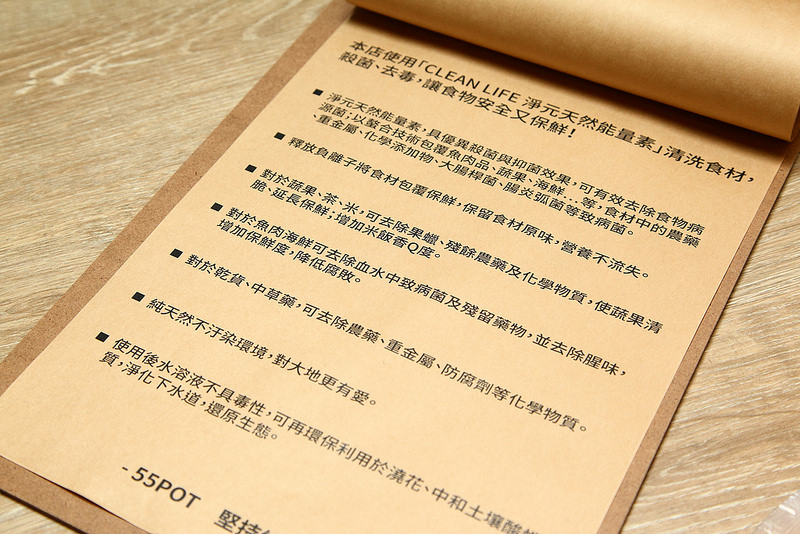 本店使用「CLEAN LIFE 淨元天然能量素」清洗食材,
殺菌、去毒,讓食物安全又保鮮!
■ 淨元天然能量素,具優異殺菌與抑菌效果,可有效去除食物病
源菌;以螯合技術包覆魚肉品、蔬果、海鮮…等,食材中的農藥
、重金屬、化學添加物、大腸桿菌、腸炎弧菌等致病菌。
■ 釋放負離子將食材包覆保鮮,保留食材原味,營養不流失。
■ 對於蔬果、茶、米,可去除果蠟、殘餘農藥及化學物質,使蔬果清
脆、延長保鮮;增加米飯香Q度。
■ 對於魚肉海鮮可去除血水中致病菌及殘留藥物,並去除腥味,
增加保鮮度,降低腐敗。
■ 對於乾貨、中草藥,可去除農藥、重金屬、防腐劑等化學物質。
■ 純天然不汙染環境,對大地更有愛。
■ 使用後水溶液不具毒性,可再環保利用於澆花、中和土壤酸
質,淨化下水道,還原生態。
- 55POT 堅持